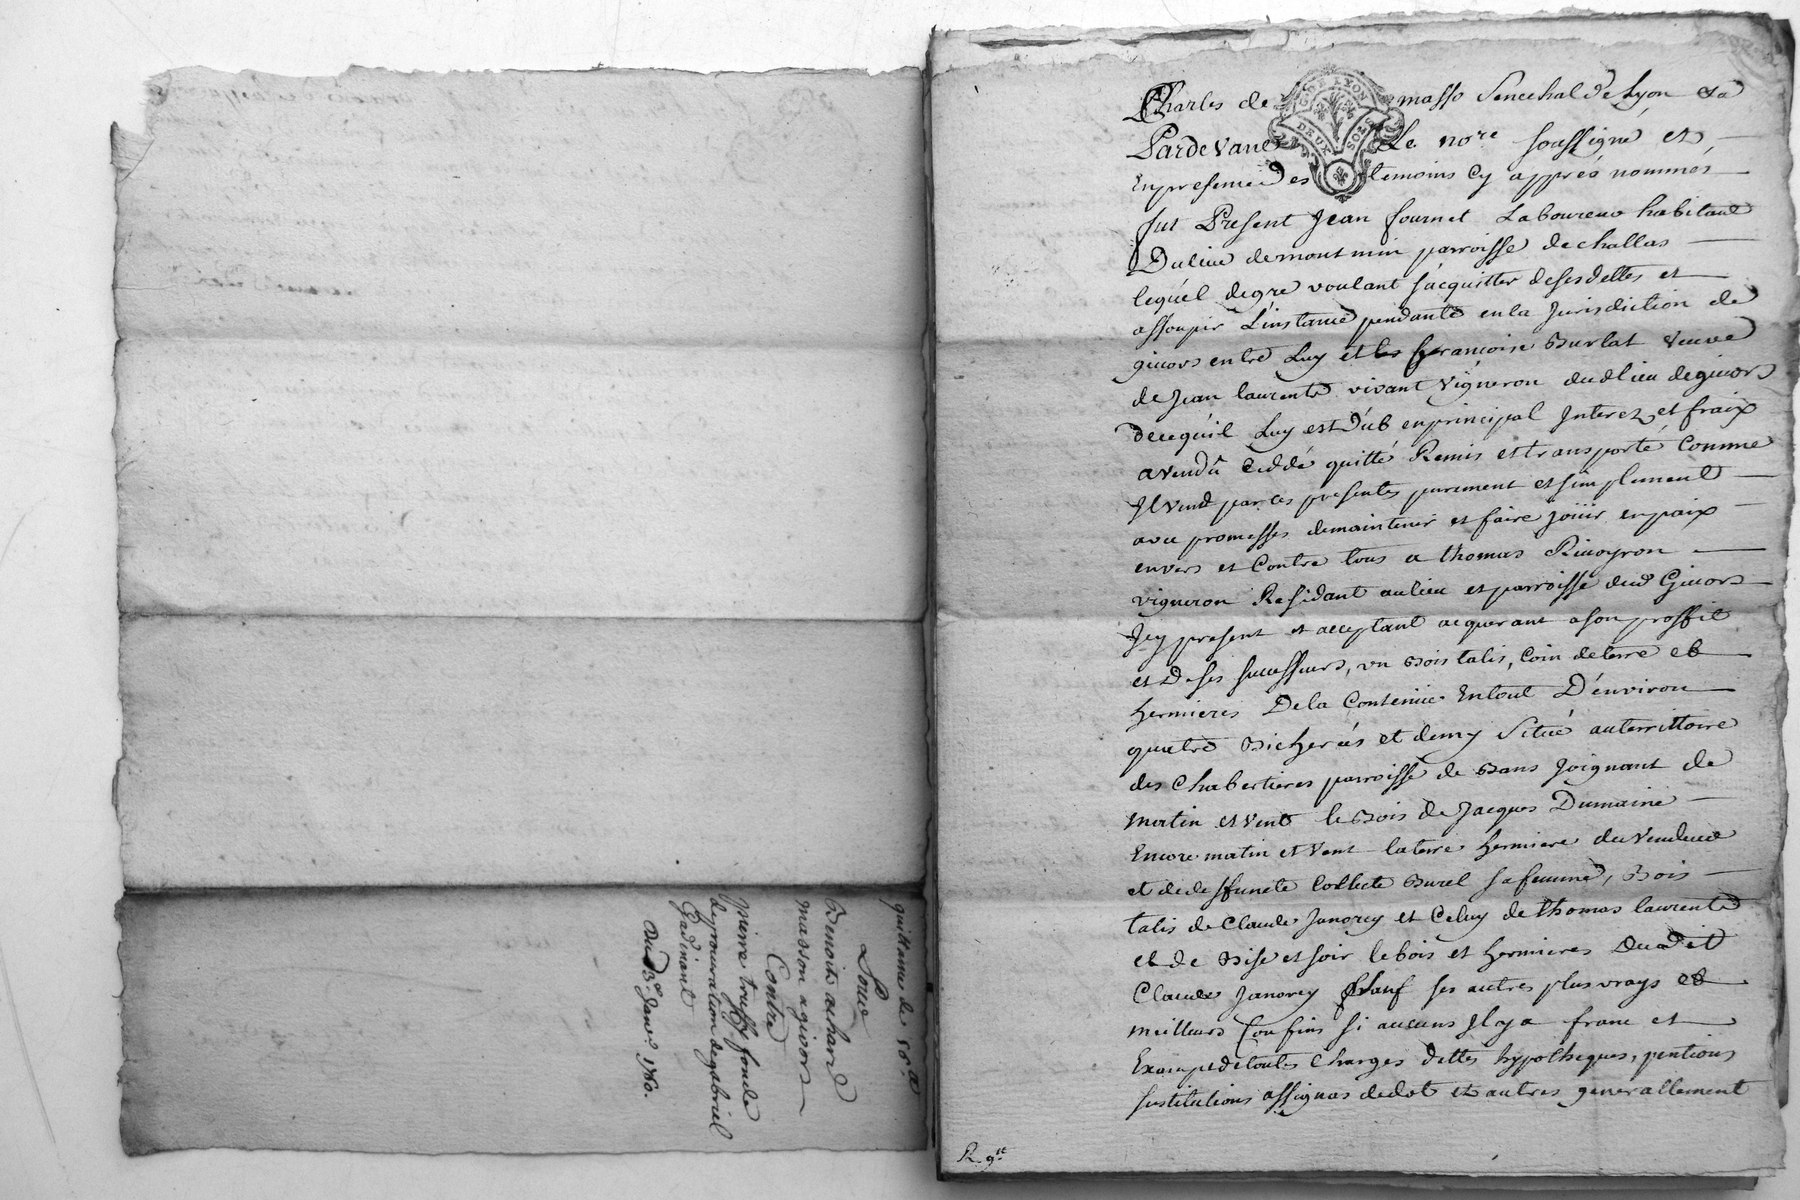 quittance de 50ᵗᵗ
Pour
Benoit achard
masson a givors
Contre
pierre truffy fondé
de procuration de gabriel
Gadinant
Du 3ᵉ Janᵛ 1760.
G. DE LYON
DEUX SOLS
Charles de masso Senechal de Lyon
Pardevant Le noʳᵉ soussigné et
En presence des temoins Cy apprés nommés
fut Present Jean fournet Laboureur habitant
Du lieu de montmin parroisse de challas
lequel de gre voulant s'acquitter de ses dettes et
assoupir L'instance pendante en la Jurisdiction de
givors entre Luy et francoise Burlat veuve
de Jean laurent vivant vigneron dud lieu de givors
de ce qu'il Luy est dub en principal Interez et fraix
a vendû ceddé quitté Remis et transporté Comme
Il vend par ces presentes purement et simplement
avec promesses de maintenir et faire joüir en paix
envers et Contre tous a thomas Rivoyron
vigneron Residant au lieu et parroisse dud Givors
Icy present et acceptant acquerant a son proffit
et De ses successeurs, un Bois talis, Coin de terre et
hermieres De la Contenüe En tout D'environ
quatre Bicherées et demy Situé au territtoire
des Chabertieres parroisse de Bans Joignant de
matin et vent le Bois de Jacques Dumaine
Encore matin et vent la terre hermiere du Vendeur
et de deffunete Collecte Burel sa femme, Bois
talis de Claude Janorey et Celuy de thomas laurent
et de Bise et soir le bois et hermieres Dudit
Claude Janorey sauf ses autres plus vrays et
meilleurs Confins si aucuns Il y a franc et
Exempt de toutes Charges dettes hypotheques, pentions
sustitutions assignas de dot et autres generallement
R. 9ᵗ